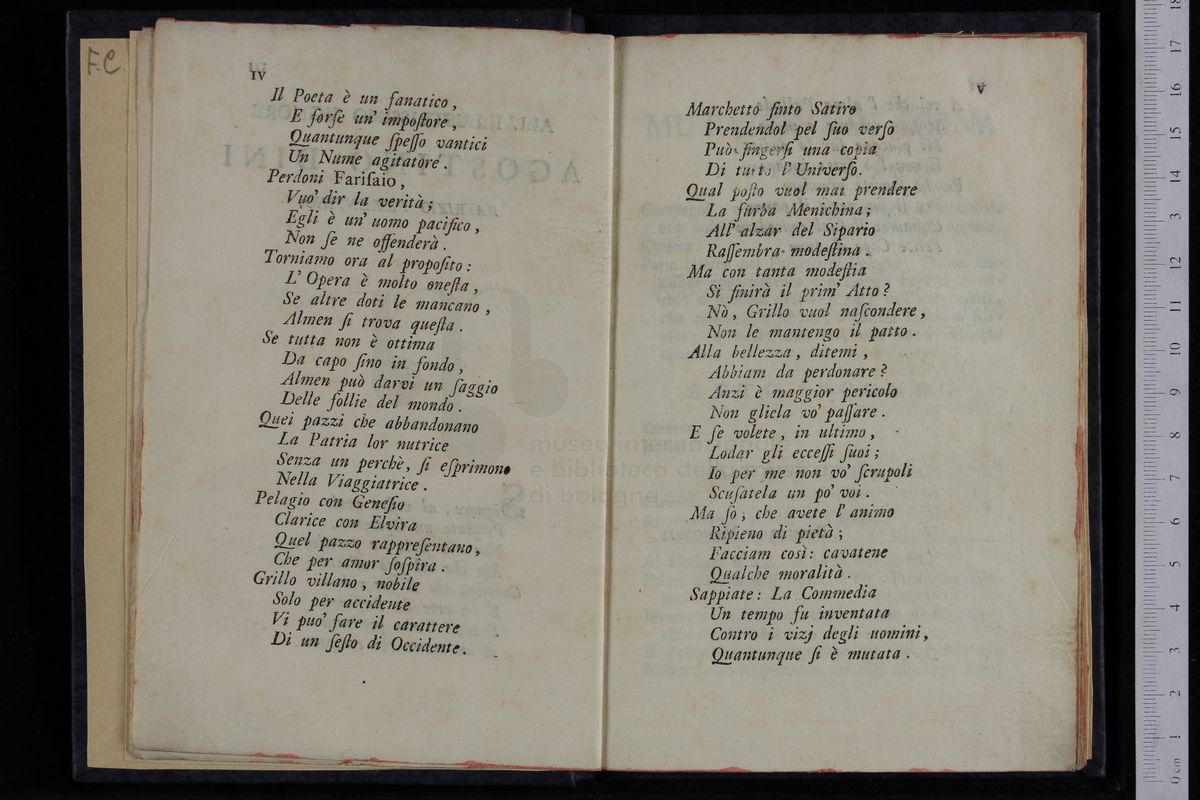 F.C
IV
Il Poeta è un fanatico,
E forſe un' impoſtore,
Quantunque ſpeſſo vantici
Un Nume agitatore.
Perdoni Fariſaio,
Vuo' dir la verità;
Egli è un' uomo pacifico,
Non ſe ne offenderà.
Torniamo ora al propoſito:
L' Opera è molto oneſta,
Se altre doti le mancano,
Almen ſi trova queſta.
Se tutta non è ottima
Da capo ſino in fondo,
Almen può darvi un ſaggio
Delle follie del mondo.
Quei pazzi che abbandonano
La Patria lor nutrice
Senza un perchè, ſi eſprimono
Nella Viaggiatrice.
Pelagio con Geneſio
Clarice con Elvira
Quel pazzo rappreſentano,
Che per amor ſoſpira.
Grillo villano, nobile
Solo per accidente
Vi può fare il carattere
Di un ſeſto di Occidente.
V
Marchetto finto Satiro
Prendendol pel ſuo verſo
Può fingerſi una copia
Di tutto l' Univerſo.
Qual poſto vuol mai prendere
La furba Menichina;
All' alzar del Sipario
Raſſembra modeſtina.
Ma con tanta modeſtia
Si finirà il prim' Atto?
Nò, Grillo vuol naſcondere,
Non le mantengo il patto.
Alla bellezza, ditemi,
Abbiam da perdonare?
Anzi è maggior pericolo
Non gliela vo' paſſare.
E ſe volete, in ultimo,
Lodar gli ecceſſi ſuoi;
Io per me non vo' ſcrupoli
Scuſatela un po' voi.
Ma ſò, che avete l' animo
Ripieno di pietà;
Facciam così: cavatene
Qualche moralità.
Sappiate: La Commedia
Un tempo fu inventata
Contro i vizj degli uomini,
Quantunque ſi è mutata.